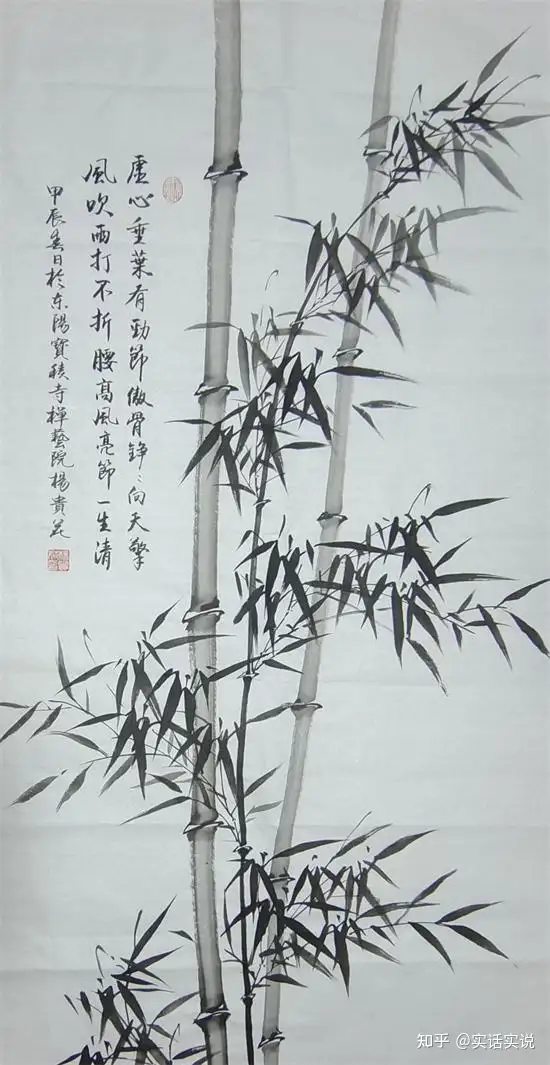 虛心垂葉有勁節傲骨錚〻向天擎
風吹雨打不折腰高風亮節一生清
甲辰春日於东陽寶積寺禅藝院楊貴花
知乎 @实话实说